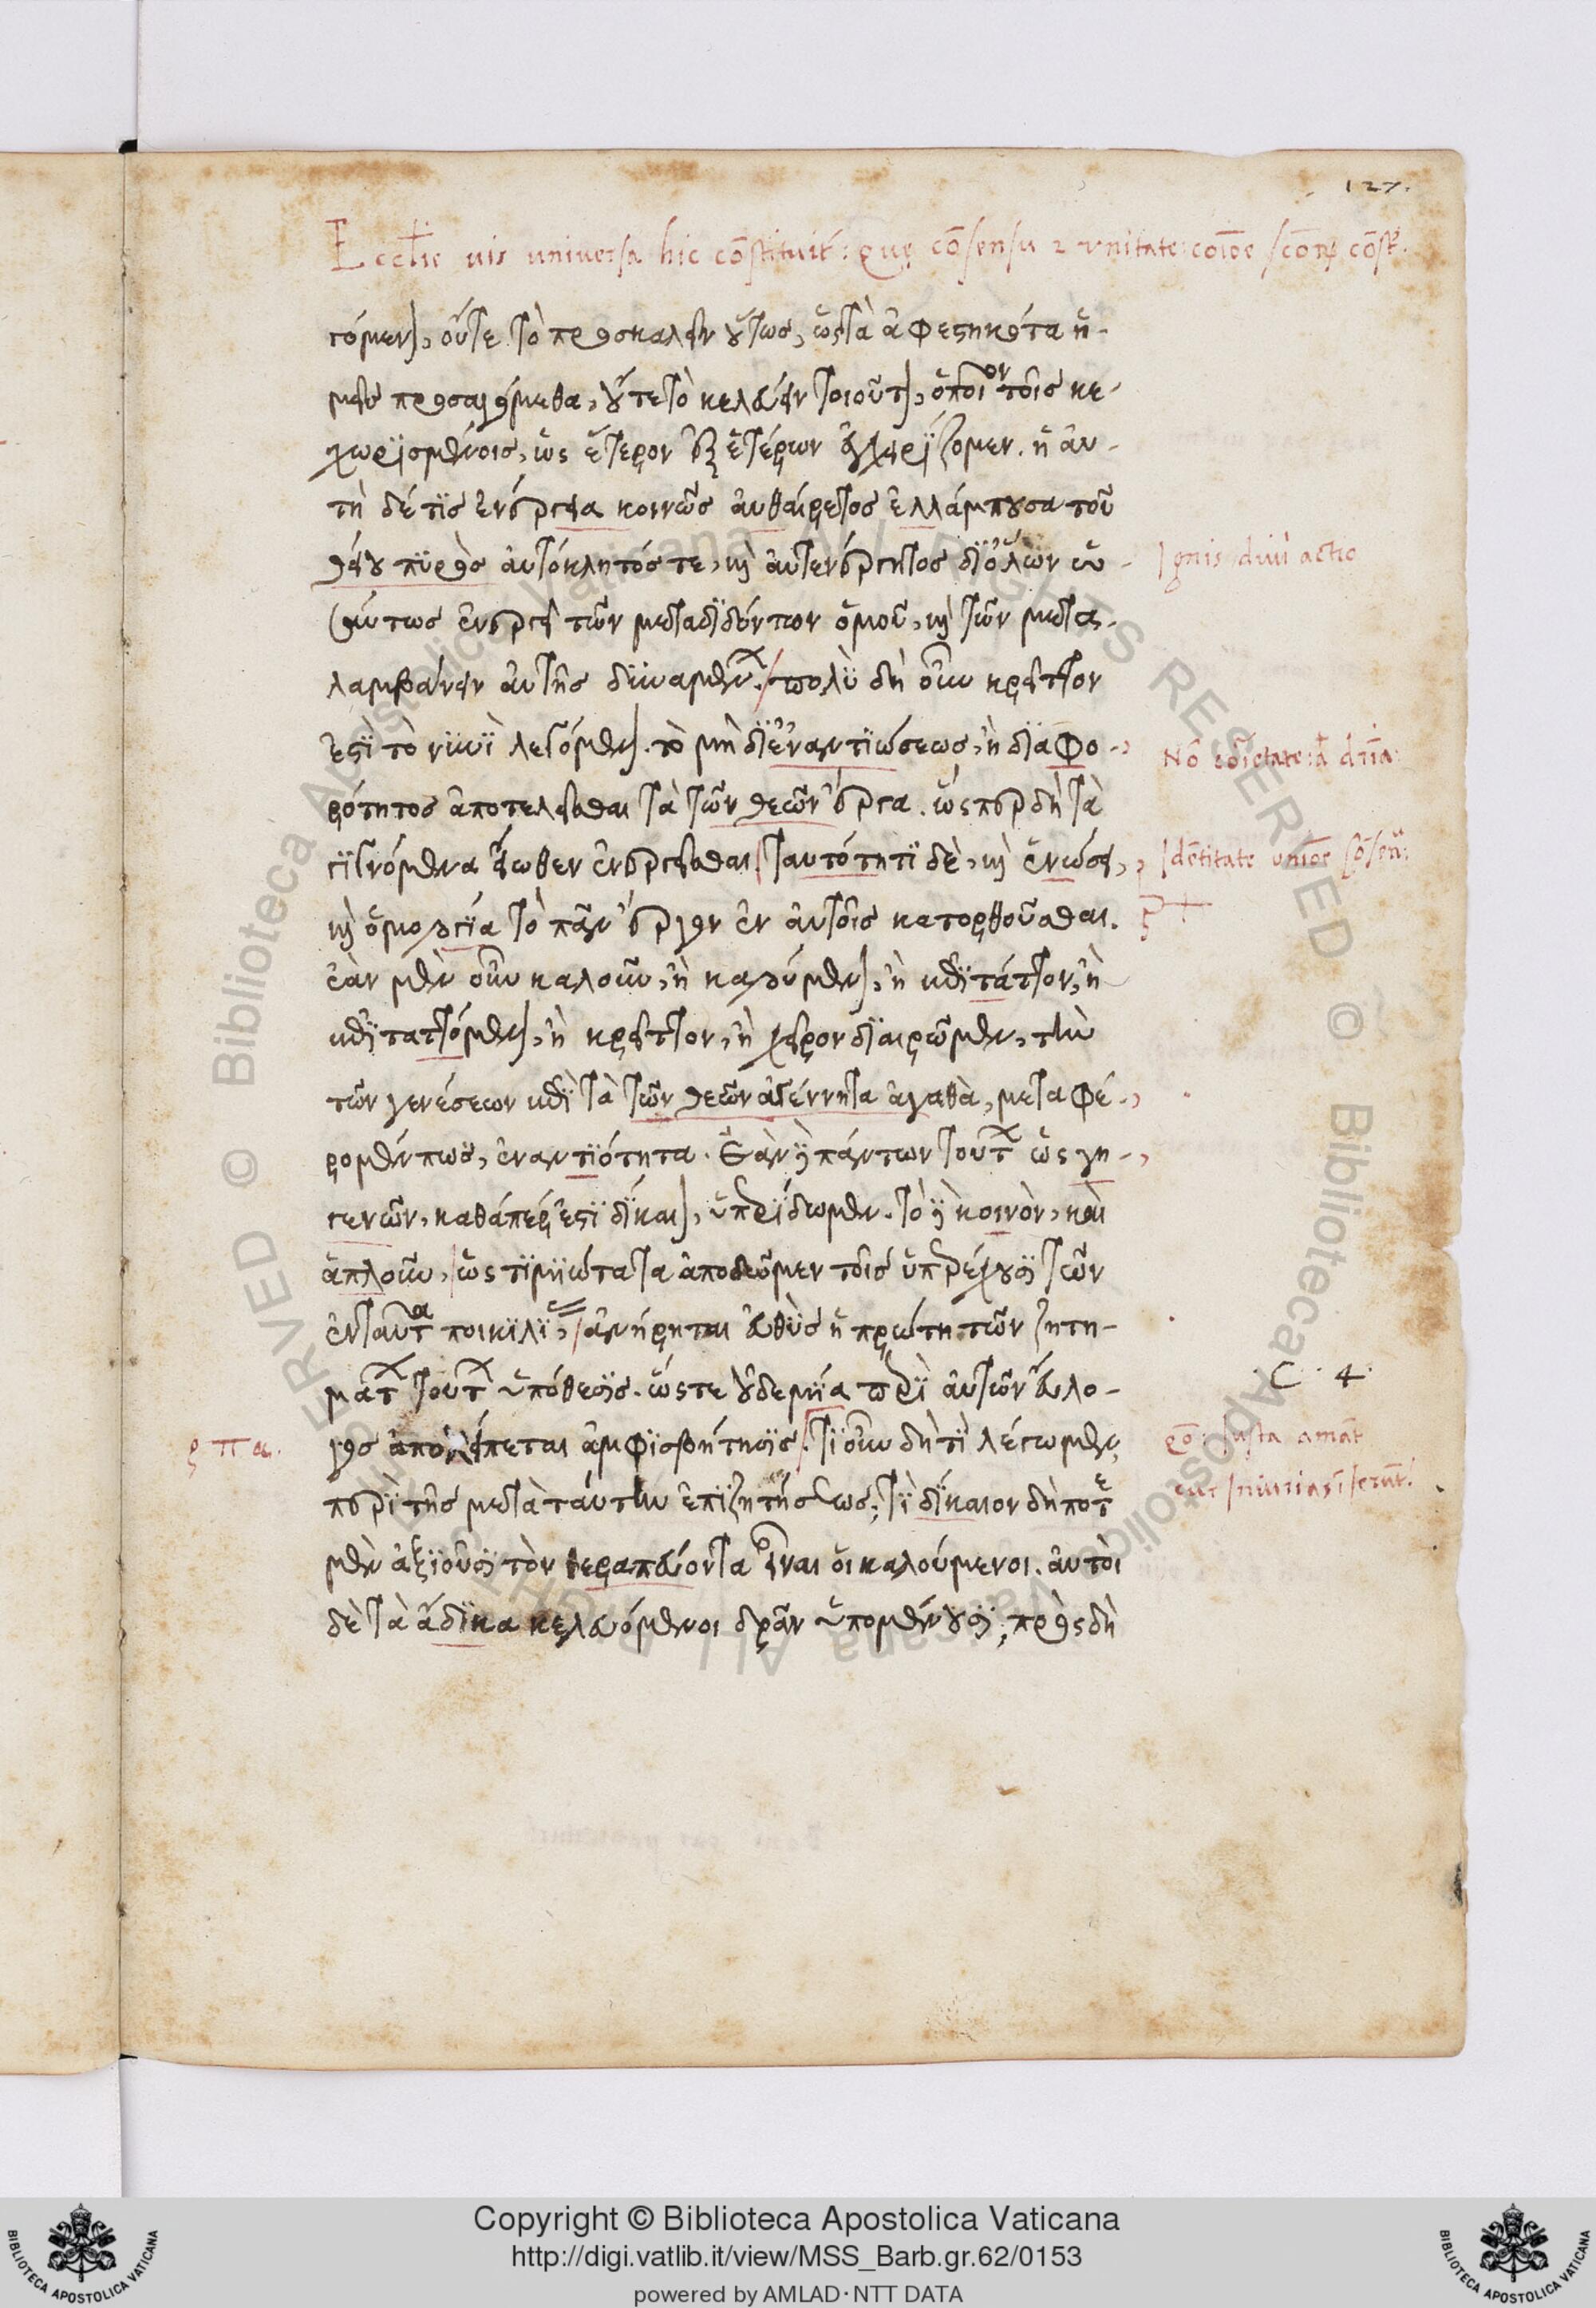 127.
τόμενον, οὔτε τὸ προσκαλεῖν οὕτως, ὡς τὰ ἀφεστηκότα ἡ-
μεῖς προσαγόμεθα, οὔτε τὸ κελεύειν τοιοῦτον, ὁποῖον τοῖς κε-
χωρισμένοις, ὡς ἕτερον ἐξ ἑτέρων ἐγχειρίζομεν. ἡ αὐ-
τὴ δέ τις ἐνέργεια κοινῶς αὐθαίρετος ἐλλάμπουσα τοῦ
θείου πυρὸς αὐτόκλητός τε, καὶ αὐτενέργητος δι' ὅλων ὡ-
σαύτως ἐνεργεῖ τῶν μεταδιδόντων ὁμοῦ, καὶ τῶν μετα-
λαμβάνειν αὐτῆς δυναμένων. πολὺ δὴ οὖν κρεῖττον
ἐστὶ τὸ νυνὶ λεγόμενον. τὸ μὴ δι' ἐναντιώσεως, ἢ διαφο-
ρότητος ἀποτελεῖσθαι τὰ τῶν θεῶν ἔργα. ὥσπερ δὴ τὰ
γιγνόμενα εἴωθεν ἐνεργεῖσθαι ταυτότητι δὲ, καὶ ἑνώσει,
καὶ ὁμολογία τὸ πᾶν ἔργον ἐν αὐτοῖς κατορθοῦσθαι.
ἐὰν μὲν οὖν καλοῦν, ἢ καλούμενον, ἢ ἐπιτάττον, ἢ
ἐπιταττόμενον, ἢ κρεῖττον, ἢ χεῖρον διαιρῶμεν, τὴν
τῶν γενέσεων ἐπὶ τὰ τῶν θεῶν ἀγέννητα ἀγαθὰ, μεταφέ-
ρομέν πως, ἐναντιότητα. ἐὰν δὲ πάντων τούτων ὡς γη-
γενῶν, καθάπερ ἐστὶ δίκαιον, ὑπερίδωμεν. τὸ δὲ κοινὸν, καὶ
ἁπλοῦν, ὡς τιμιώτατα ἀποδῶμεν τοῖς ὑπερέχουσι τῶν
ἐνταῦτα ποικίλων, ἀνήρηται εὐθὺς ἡ πρώτη τῶν ζητη-
μάτων τούτων ὑπόθεσις. ὥστε οὐδεμία περὶ αὐτῶν εὔλο-
γος ἀπολείπεται ἀμφισβήτησις. Τί οὖν δὴ τὶ λέγωμεν
περὶ τῆς μετὰ ταύτην ἐπιζητήσεως; τί δίκαιον δήποτε
μὲν ἀξιοῦσι τὸν θεραπεύοντα εἶναι οἱ καλούμενοι. αὐτοὶ
δὲ τὰ ἄδικα κελευόμενοι δρᾶν ὑπομένουσι; πρὸς δὴ
Ignis diui actio
C · 4·
Copyright © Biblioteca Apostolica Vaticana
http://digi.vatlib.it/view/MSS_Barb.gr.62/0153
powered by AMLAD·NTT DATA
BIBLIOTECA APOSTOLICA VATICANA
BIBLIOTECA APOSTOLICA VATICANA